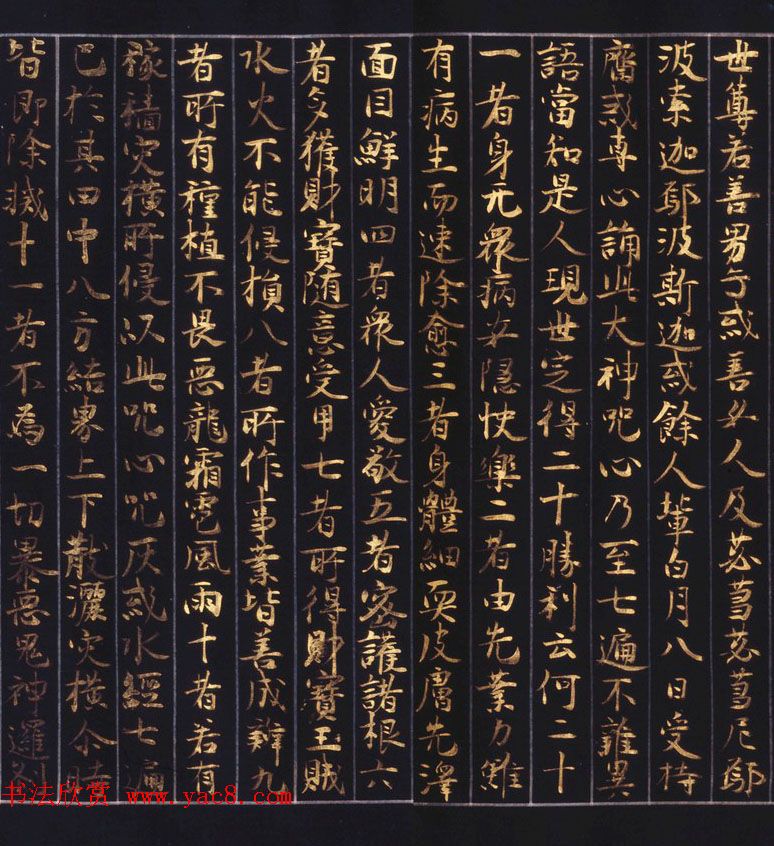 世尊若善男子或善女人及苾芻苾芻尼鄔
波索迦鄔波斯迦或餘人輩白月八日受持
齋戒專心誦此大神咒心乃至七遍不雜異
語當知是人現世定得二十勝利云何二十
一者身无眾病安隱快樂二者由先業力雖
有病生而速除愈三者身體細耎皮膚光澤
面目鮮明四者眾人愛敬五者密護諸根六
者多獲財寶隨意受用七者所得財寶王賊
水火不能侵損八者所作事業皆善成辦九
者所有種植不畏惡龍霜雹風雨十者若有
稼穡灾橫所侵以此咒心咒灰或水經七遍
已於其田中八方結界上下散灑灾橫尒時
皆即除滅十一者不為一切暴惡鬼神邏剎
书法欣赏 www.yac8.com